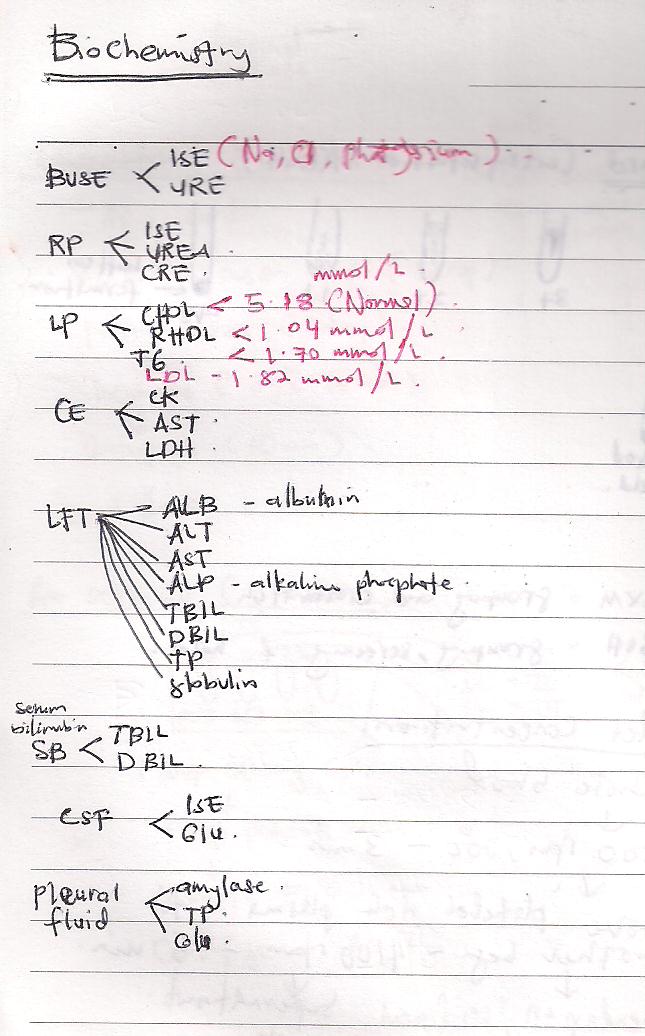 Biochemistry
BUSE < ISE (Na, Cl, photassium)
URE
RP < ISE
UREA.
CRE.
mmol/L.
LP < CHOL < 5.18 (Normal).
RHDL < 1.04 mmol/L
TG < 1.70 mmol/L.
LDL - 1.82 mmol/L.
CE < CK
AST.
LDH.
LFT ALB - albumin
ALT
AST
ALP - alkaline phosphate.
TBIL
DBIL
TP
globulin
serum
bilirubin
SB < TBIL
DBIL.
CSF < ISE
Glu.
Pleural
fluid < amylase.
TP.
Glu.